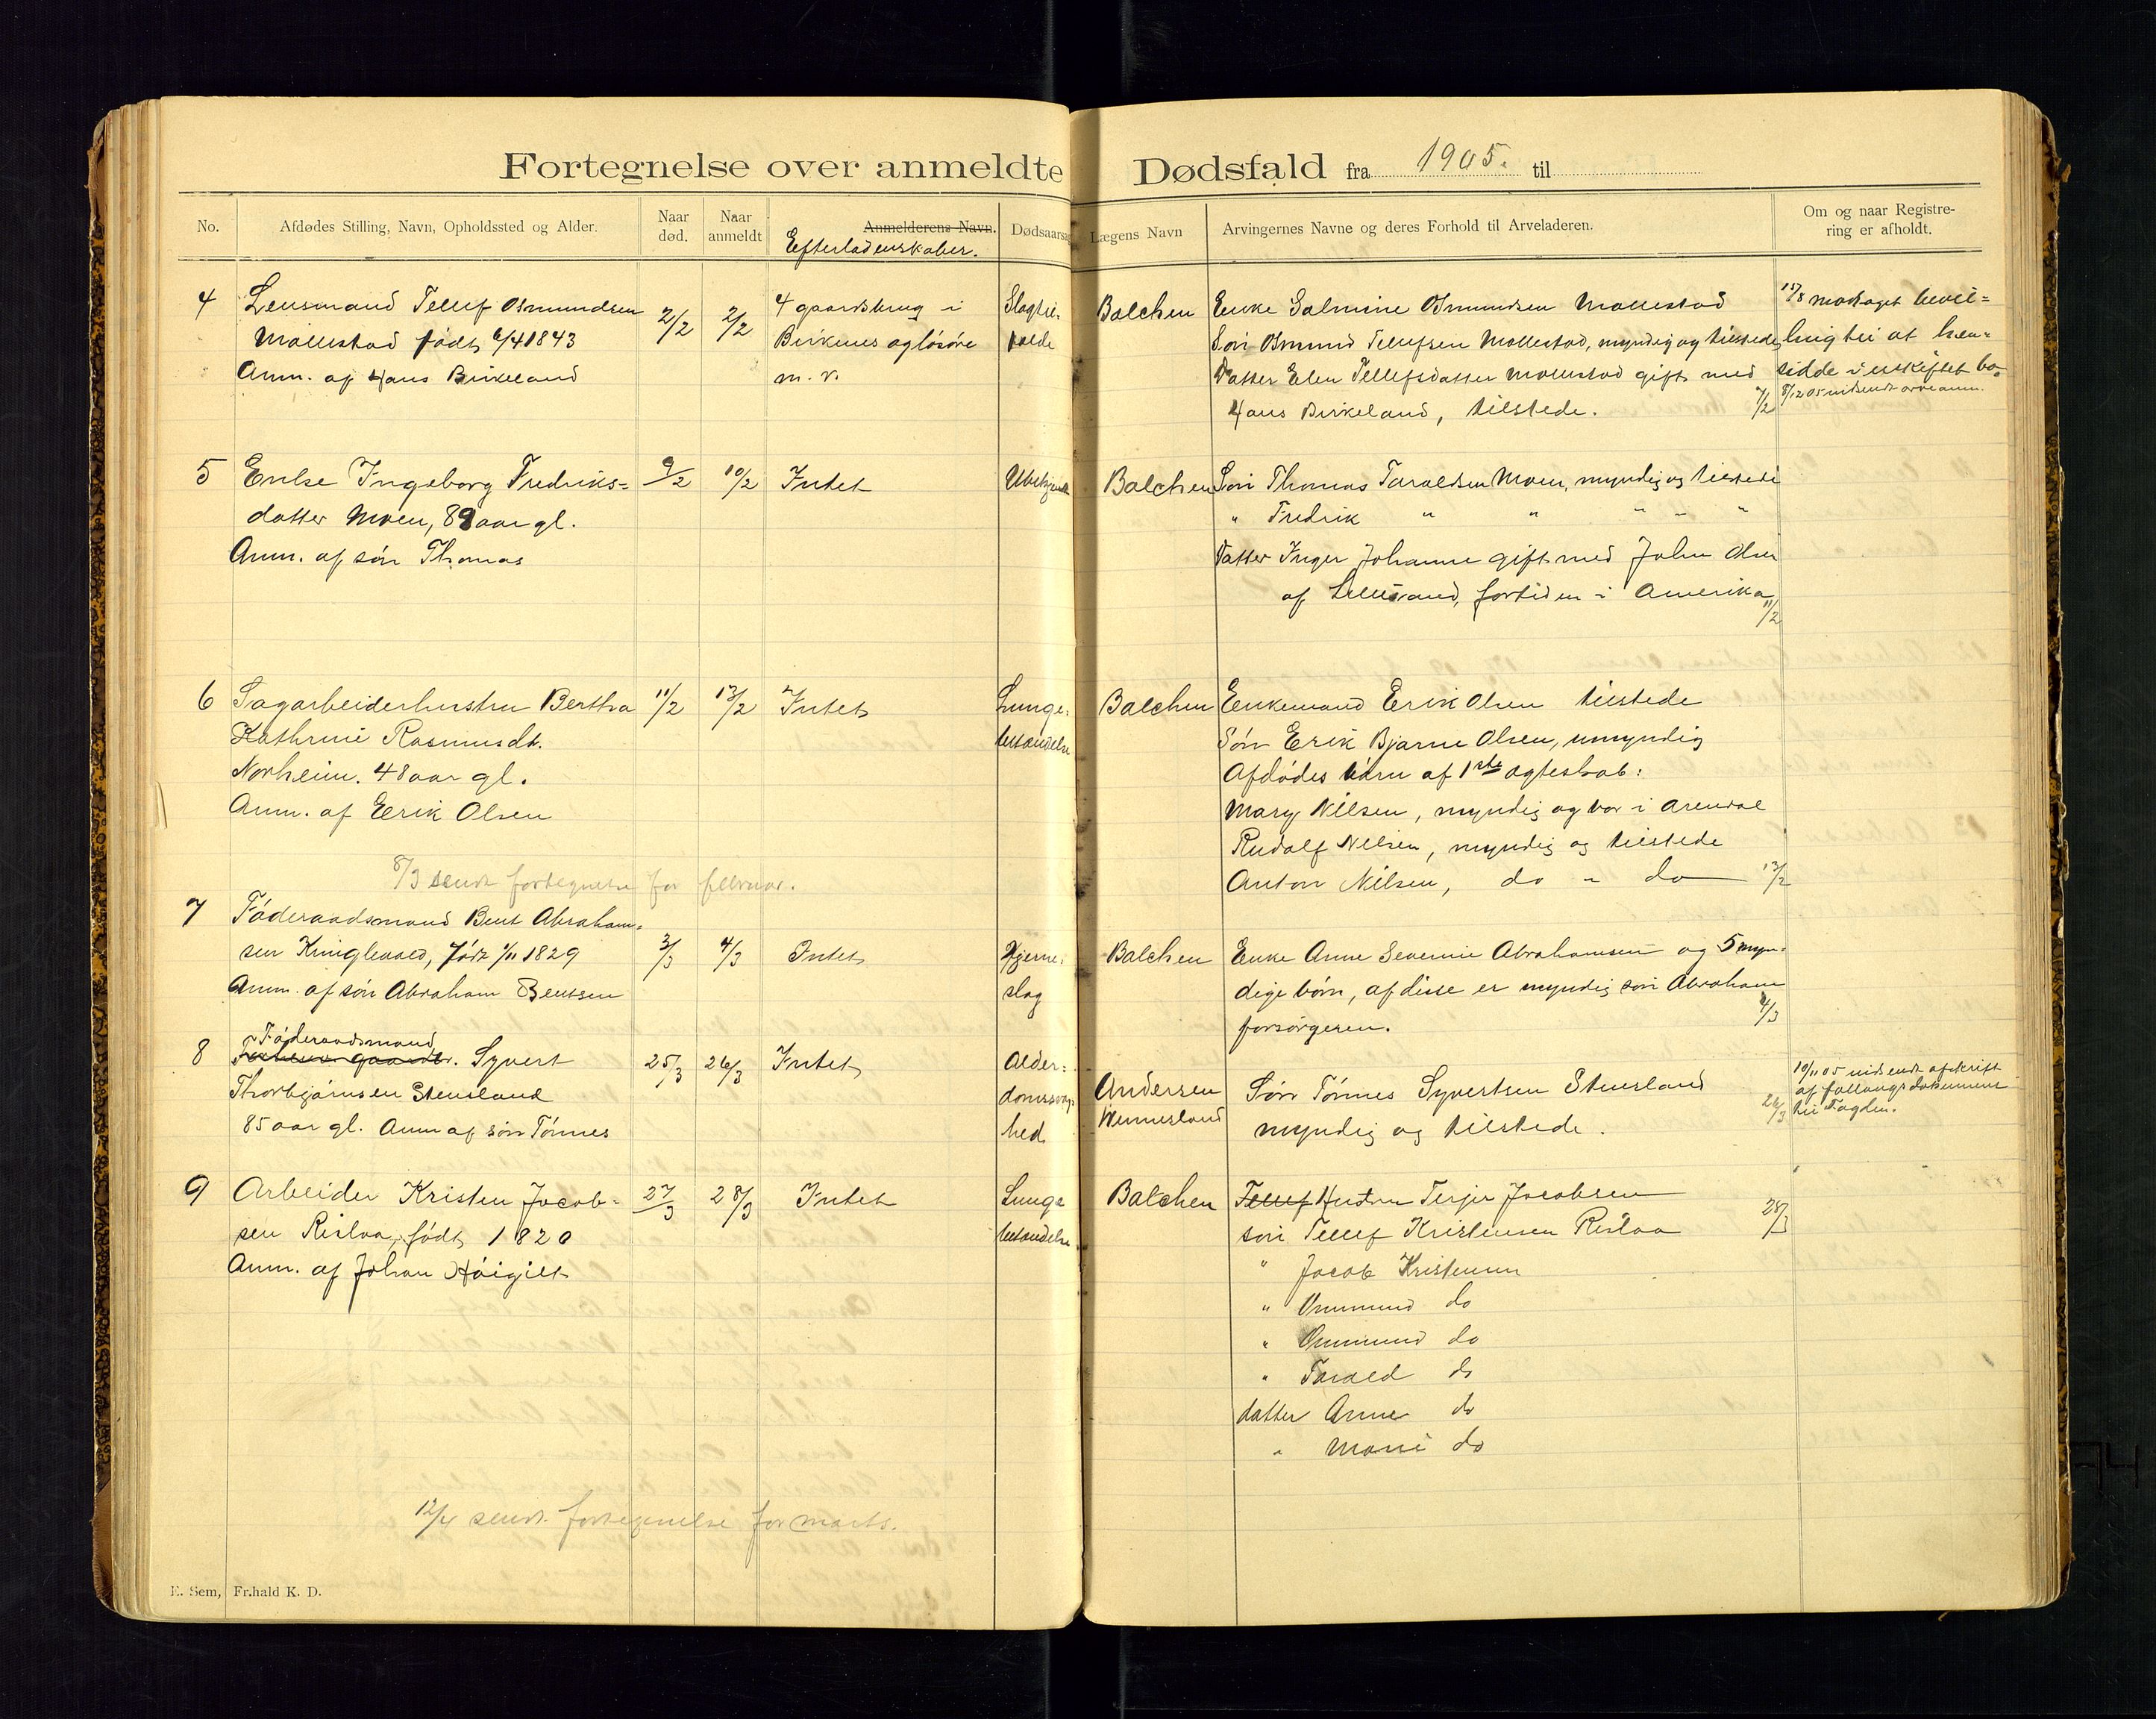 Fortegnelse over anmeldte Dødsfald fra 1905. til
No.
Afdødes Stilling, Navn, Opholdssted og Alder.
Naar død.
Naar anmeldt
Anmelderens Navn.
Efterladenskaber.
Dødsaarsag
Lægens Navn
Arvingernes Navne og deres Forhold til Arveladeren.
Om og naar Registrering er afholdt.
4
Lensmand Tellef Osmundsen
Mollestad født 6/4 1843
Anm. af Hans Birkeland
2/2
2/2
4 gaardsbrug i
Birkenes og løsøre
m. v.
Slagtil-
fælde
Balchen
Enke Salmine Osmundsen Mollestad
Søn Osmund Tellefsen Mollestad, myndig og tilstede
Datter Elen Tellefsdatter Mollestad gift med
Hans Birkeland, tilstede. 7/2
17/8 modtaget bevil=
ling til at hen-
sidde i uskiftet bo.
8/12 05 indsendt arveanm.
5
Enke Ingeborg Fredriks=
datter Moen, 89 aar gl.
Anm. af søn Thomas
9/2
10/2
Intet
Ubekjendt
Balchen
Søn Thomas Taraldsen Moen, myndig og tilstede
" Fredrik " " " " "
Datter Inger Johanne gift med John Olsen
af Lillesand, fortiden i Amerika
11/2
6
Sagarbeiderhustru Bertha
Kathrine Rasmusdt.
Norheim. 48 aar gl.
Anm. af Erik Olsen
11/2
13/2
Intet
Lunge=
betændelse
Balchen
Enkemand Erik Olsen tilstede
Søn Erik Bjarne Olsen, umyndig
Afdødes børn af 1ste ægteskab:
Mary Nilsen, myndig og bor i Arendal
Rudolf Nilsen, myndig og tilstede
Anton Nilsen, do " do 13/2
8/3 sendt fortegnelse for februar.
7
Føderaadsmand Bent Abraham=
sen Kringlevold, født 1/11 1829
Anm. af søn Abraham Bentsen
3/3
4/3
Intet
Hjerne=
slag
Balchen
Enke Anne Severine Abrahamsen og 5 myn=
dige børn, af disse er myndig søn Abraham
forsørgeren. 4/3
8
Føderaadsmand
Syvert
Thorbjørnsen Stensland
85 aar gl. Anm af søn Tønnes
25/3
26/3
Intet
Alder=
domssvag-
hed
Andersen
Vennesland
Søn Tønnes Syvertsen Stensland
myndig og tilstede.
26/3
10/11 05 indsendt afskrift
til Fogden.
9
Arbeider Kristen Jacob-
sen Rislaa, født 1820
Anm. af Johan Høigilt
27/3
28/3
Intet
Lunge
betændelse
Balchen
Tellef Hustru Terjer Jacobsen
søn Tellef Kristensen Rislaa
28/3
" Jacob Kristensen
" Ommund do
" Ommund do
" Tarald do
datter Anne do
" Marie do
12/4 sendt fortegnelse for marts.
E. Sem, Fr.hald K. D.